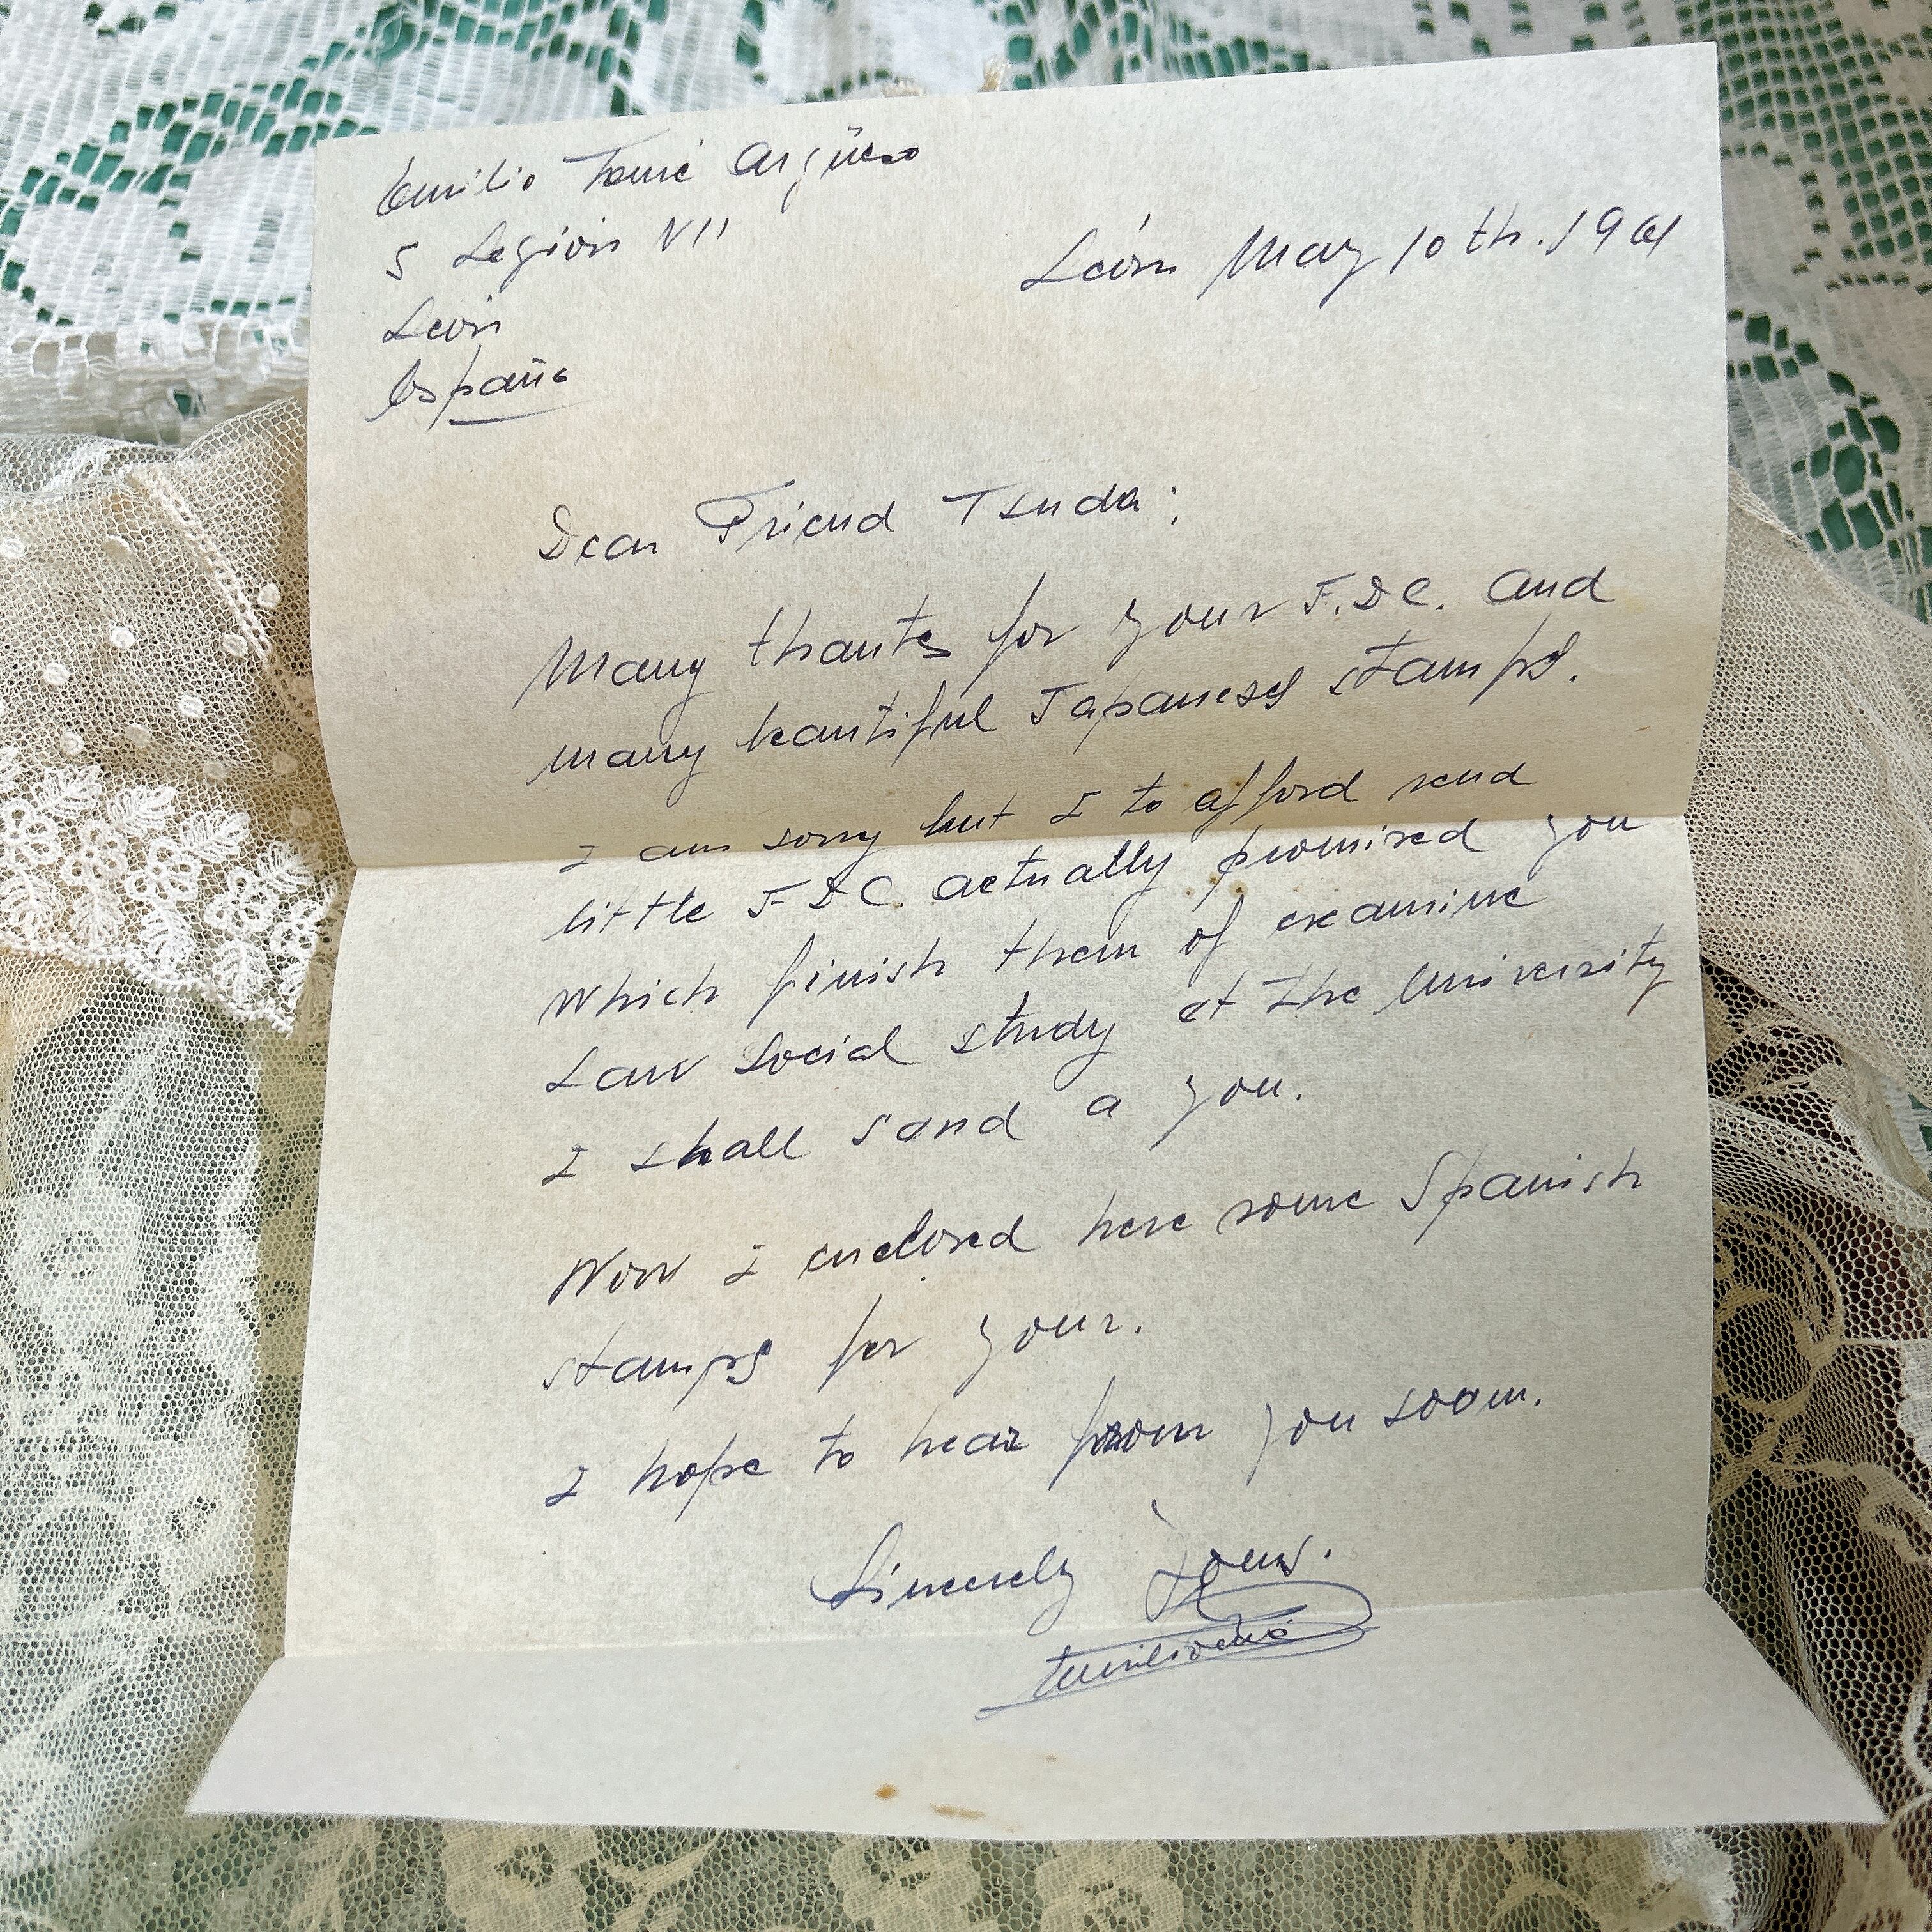 Emilio Tomé Argüeso
5 Legión VII
León
España
León May 10th. 1961
Dear Friend Tsuda:
Many thants for your F.D.C. and
many beautiful Japanesse stamps.
I am sorry but I to afford send
little F.D.C. actually promised you
which finish them of examine
Law Social study at the University
I shall sand a you.
Now I enclosed here some Spanish
stamps for your.
I hope to hear from you soom.
Sincerely Yours.